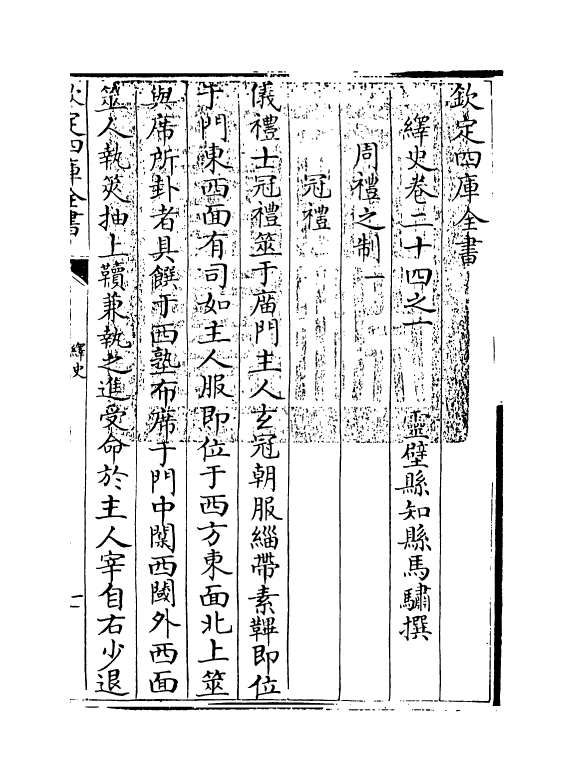 欽定四庫全書
繹史卷二十四之一
靈壁縣知縣馬驌撰
周禮之制一
冠禮
儀禮士冠禮筮于廟門主人玄冠朝服緇帶素鞸即位
于門東西面有司如主人服即位于西方東面北上筮
與席所卦者具饌于西塾布席于門中闑西閾外西面
筮人執筴抽上韇兼執之進受命於主人宰自右少退
欽定四庫全書
繹史
一